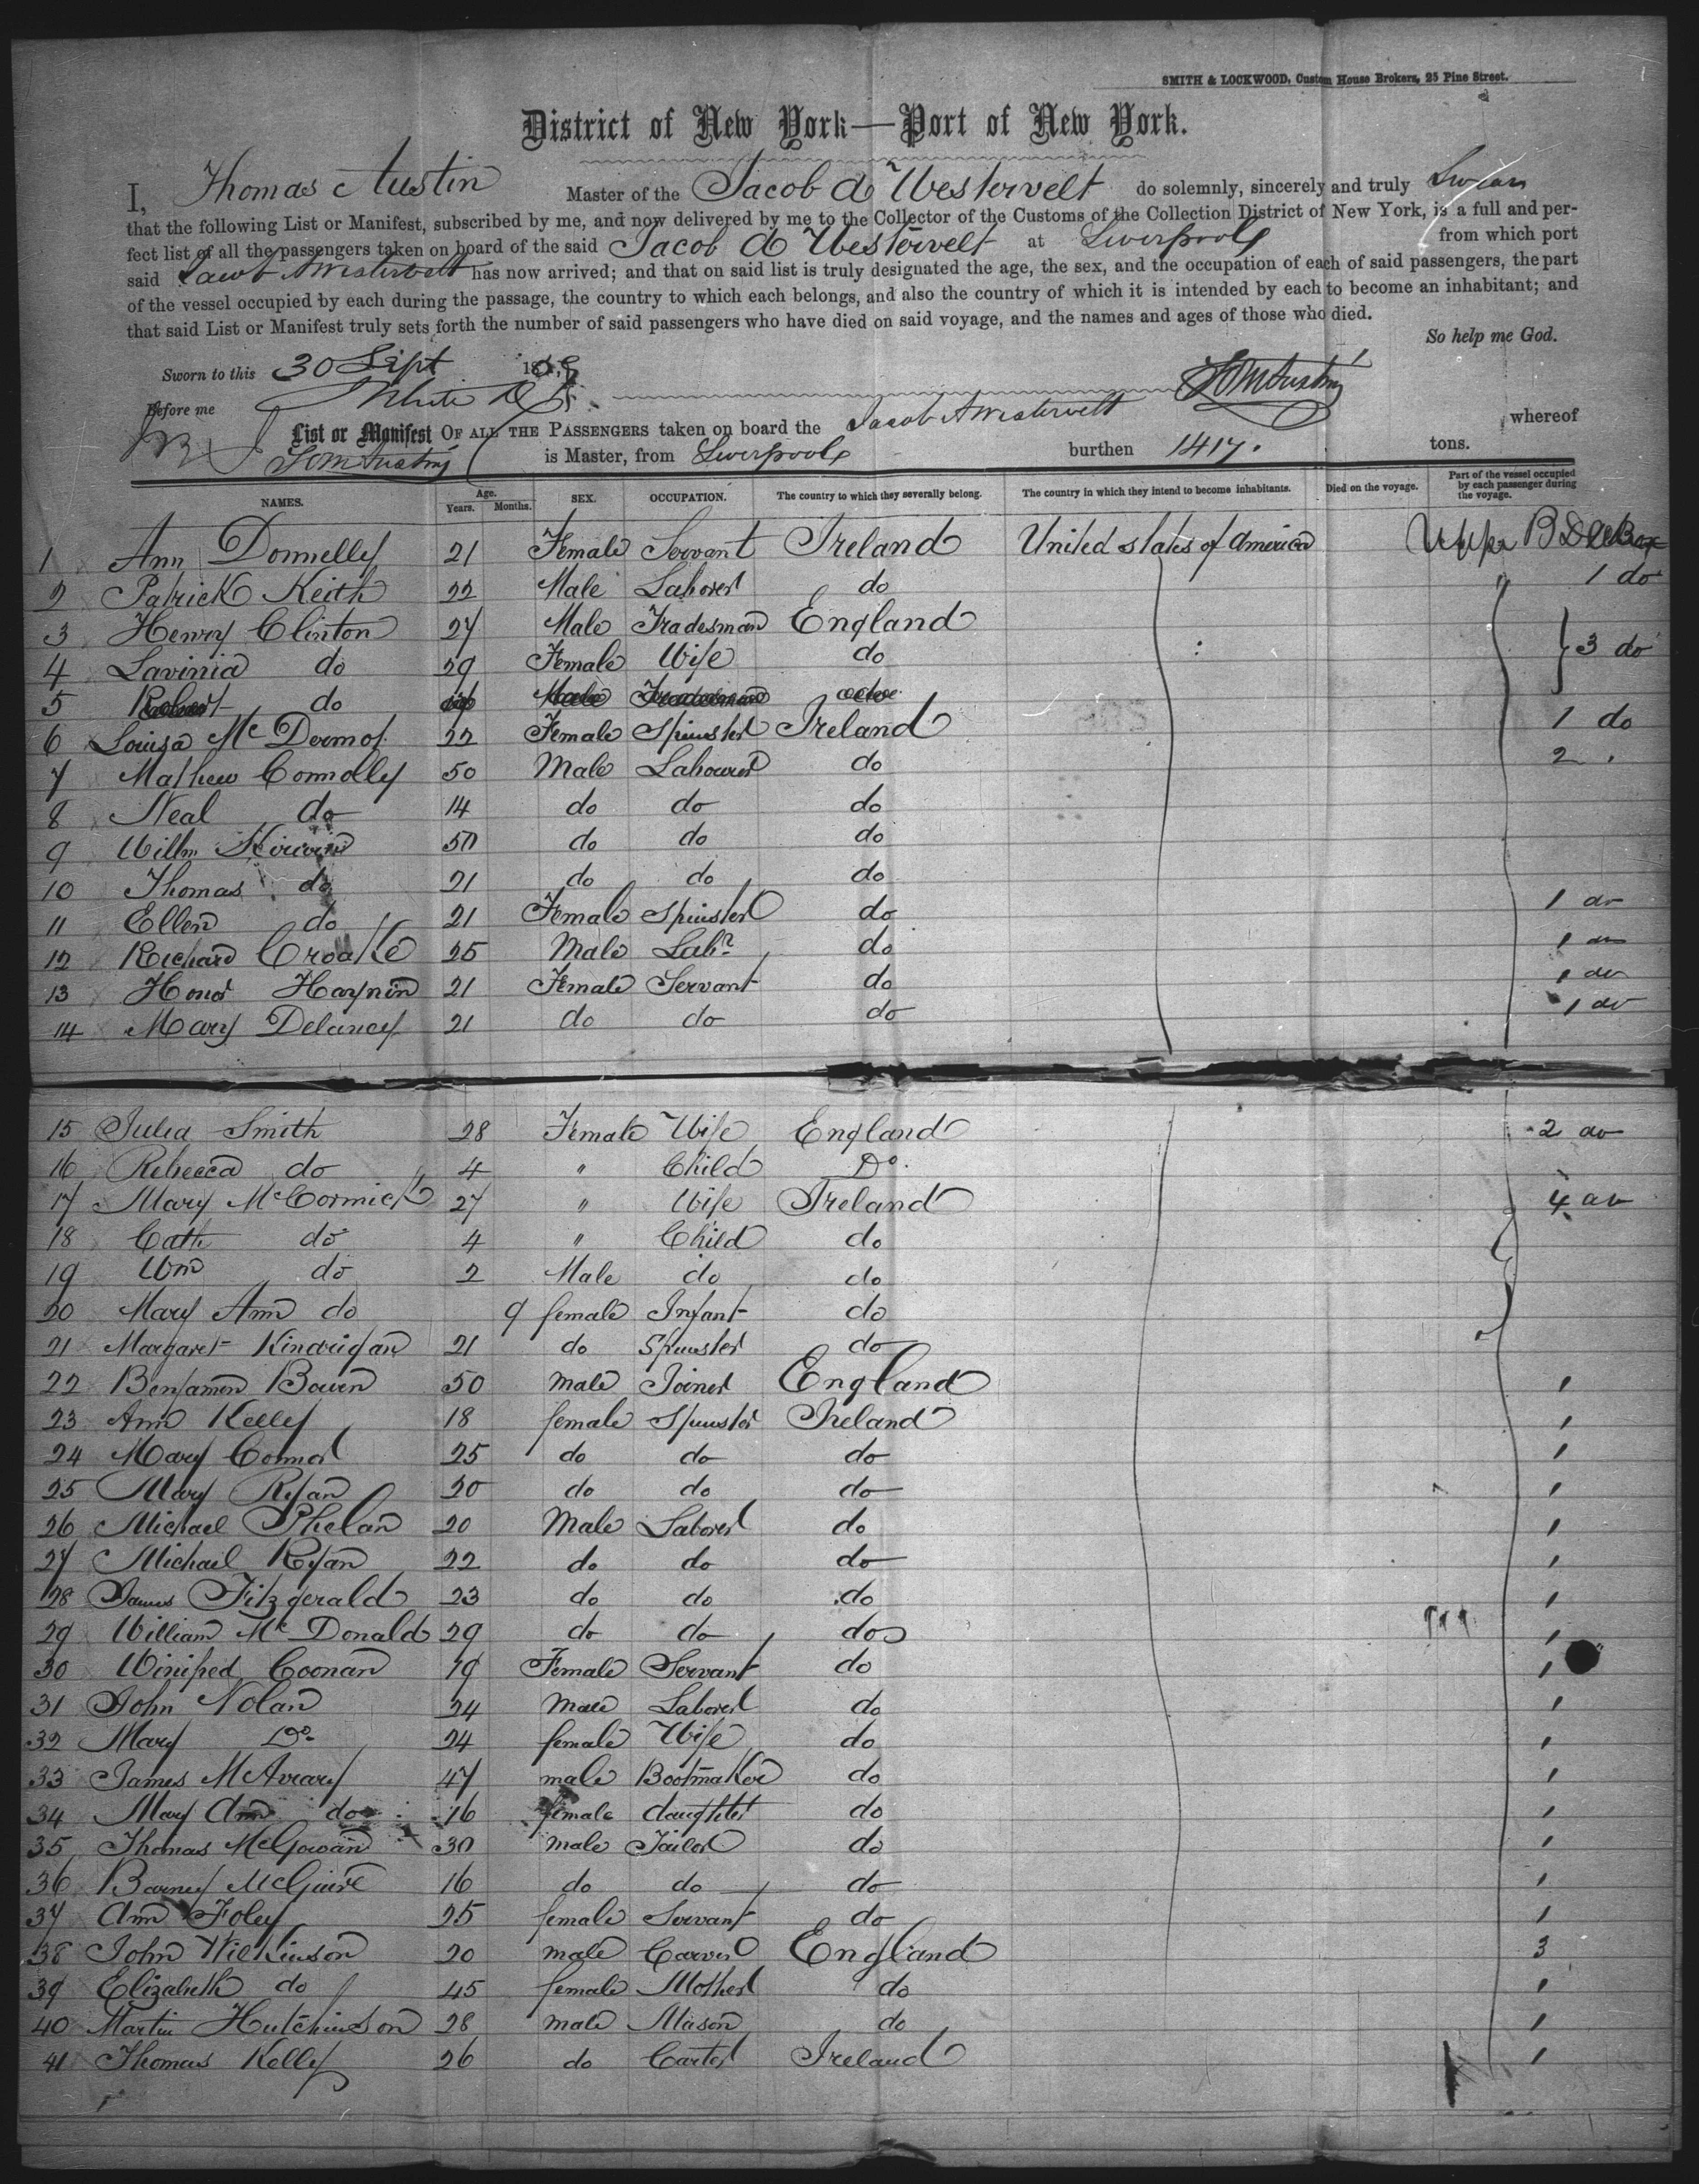 SMITH & LOCKWOOD, Custom House Brokers, 25 Pine Street.
District of New York—Port of New York.
I, Thomas Austin Master of the Jacob A Westervelt do solemnly, sincerely and truly Swear
that the following List or Manifest, subscribed by me, and now delivered by me to the Collector of the Customs of the Collection District of New York, is a full and per-
fect list of all the passengers taken on board of the said Jacob A Westervelt at Liverpool from which port
said Jacob A Westervelt has now arrived; and that on said list is truly designated the age, the sex, and the occupation of each of said passengers, the part
of the vessel occupied by each during the passage, the country to which each belongs, and also the country of which it is intended by each to become an inhabitant; and
that said List or Manifest truly sets forth the number of said passengers who have died on said voyage, and the names and ages of those who died.
So help me God.
Sworn to this 30 Sept 18
Before me
List or Manifest OF ALL THE PASSENGERS taken on board the Jacob A Westervelt whereof
is Master, from Liverpool burthen 1417. tons.
NAMES. Age. Years. Months. SEX. OCCUPATION. The country to which they severally belong. The country in which they intend to become inhabitants. Died on the voyage. Part of the vessel occupied by each passenger during the voyage.
1 Ann Donnelly 21 Female Servant Ireland United states of America Upper
2 Patrick Keith 22 Male Laborer do " 1 do
3 Henry Clinton 27 Male Tradesman England
4 Lavinia do 29 Female Wife do 3 do
5 Robert do
6 Louisa McDermot 22 Female Spinster Ireland 1 do
7 Mathew Connolly 50 Male Labourer do 2
8 Neal do 14 do do do
9 Willm Kirwin 50 do do do
10 Thomas do 21 do do do
11 Ellen do 21 Female Spinster do 1 do
12 Richard Croake 25 Male Labr do 1 do
13 Honor Haynin 21 Female Servant do 1 do
14 Mary Delancy 21 do do do 1 do
15 Julia Smith 28 Female Wife England 2 do
16 Rebecca do 4 " Child Do.
17 Mary McCormick 27 " Wife Ireland 4 do
18 Cath do 4 " Child do
19 Wm do 2 Male do do
20 Mary Ann do 9 female Infant do
21 Margaret Kinarigan 21 do Spinster do
22 Benjamen Bowen 50 male Joiner England 1
23 Ann Kelley 18 female Spinster Ireland 1
24 Mary Connor 25 do do do 1
25 Mary Ryan 20 do do do 1
26 Michael Phelan 20 Male Laborer do 1
27 Michael Ryan 22 do do do 1
28 James Fitzgerald 23 do do do 1
29 William McDonald 29 do do do 1
30 Winifred Coonan 19 Female Servant do 1
31 John Nolan 24 male Laborer do 1
32 Mary Do 24 female Wife do 1
33 James McAveary 47 male Bootmaker do 1
34 Mary Ann do 16 female daughter do 1
35 Thomas McGowan 30 male Tailor do 1
36 Barney McGuire 16 do do do 1
37 Ann Foley 25 female Servant do 1
38 John Wilkinson 20 male Carver England 3
39 Elizabeth do 45 female Mother do 1
40 Martin Hutchinson 28 male Mason do 1
41 Thomas Kelly 26 do Carter Ireland 1